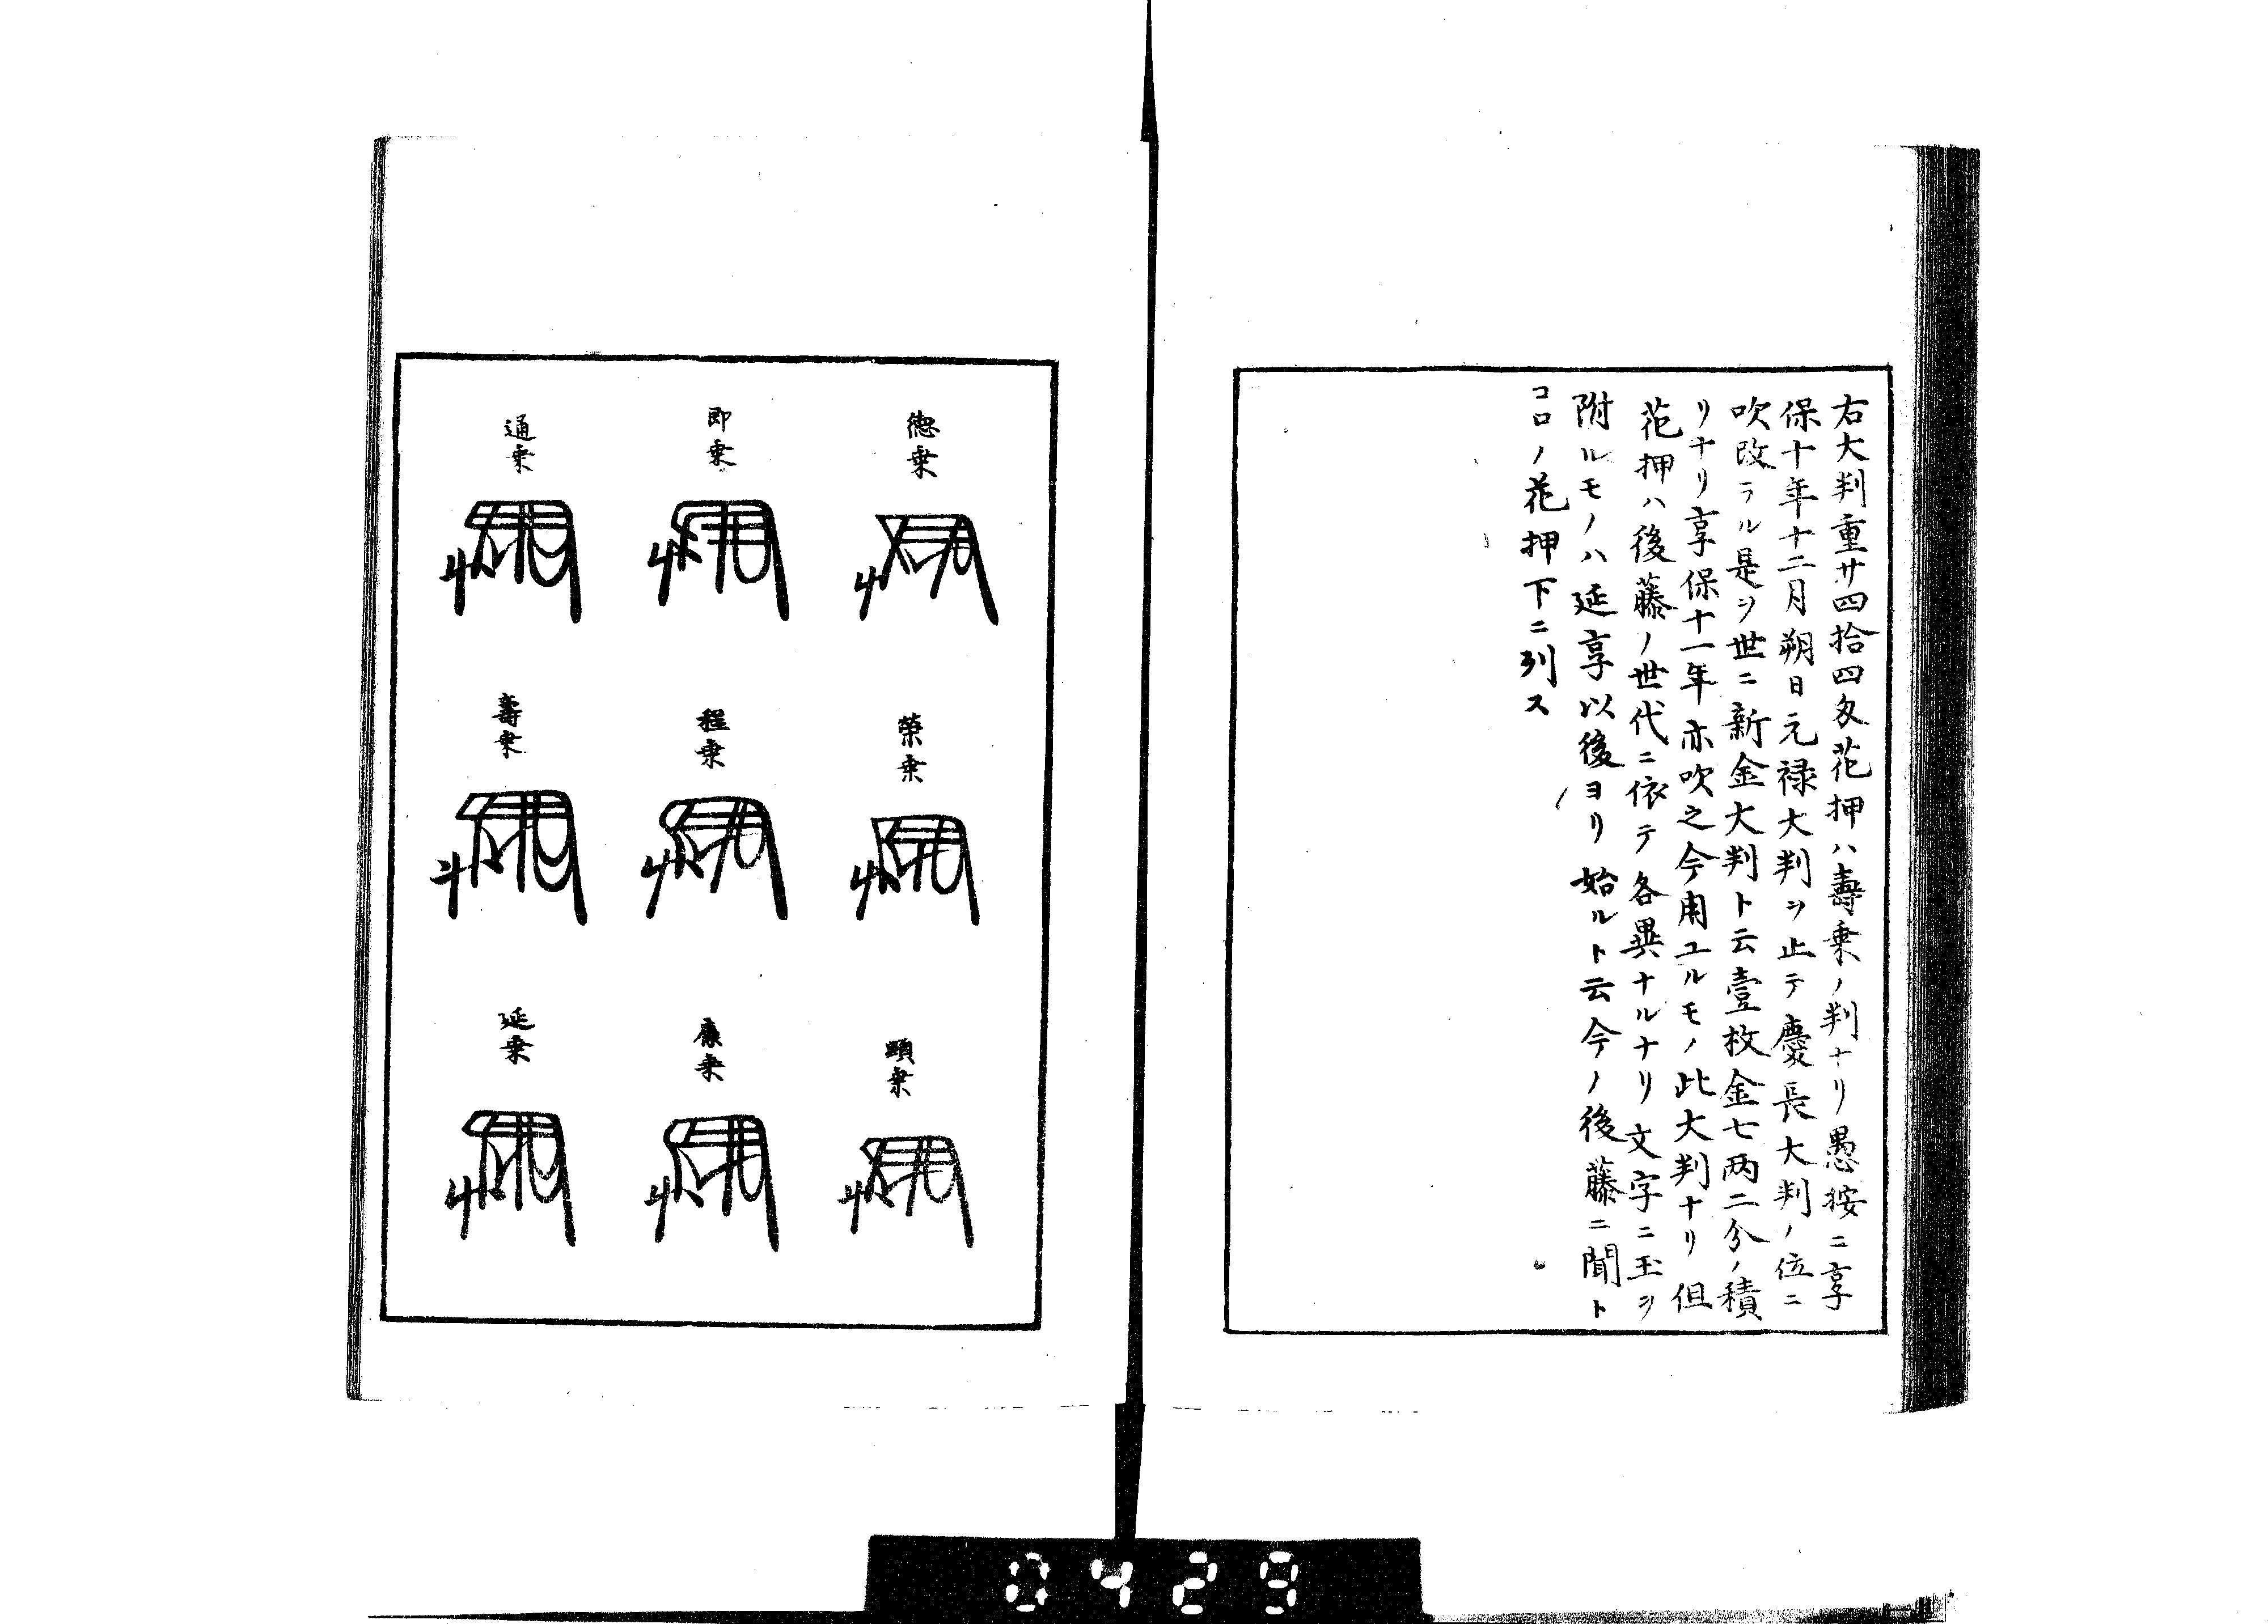 右大判重サ四拾四匁花押ハ壽乗ノ判ナリ愚按ニ享
保十年十二月朔日元禄大判ヲ止テ慶長大判ノ位ニ
吹改ラル是ヲ世ニ新金大判ト云壹枚金七两二分ノ積
リナリ享保十一年亦吹之今用ユルモノ此大判ナリ但
花押ハ後藤ノ世代ニ依テ各異ナルナリ文字ニ玉ヲ
附ルモノハ延享以後ヨリ始ルト云今ノ後藤ニ聞ト
コロノ花押下ニ列ス
徳乗
榮乗
顕乗
即乗
程乗
廉乗
通乗
壽乗
延乗
0429